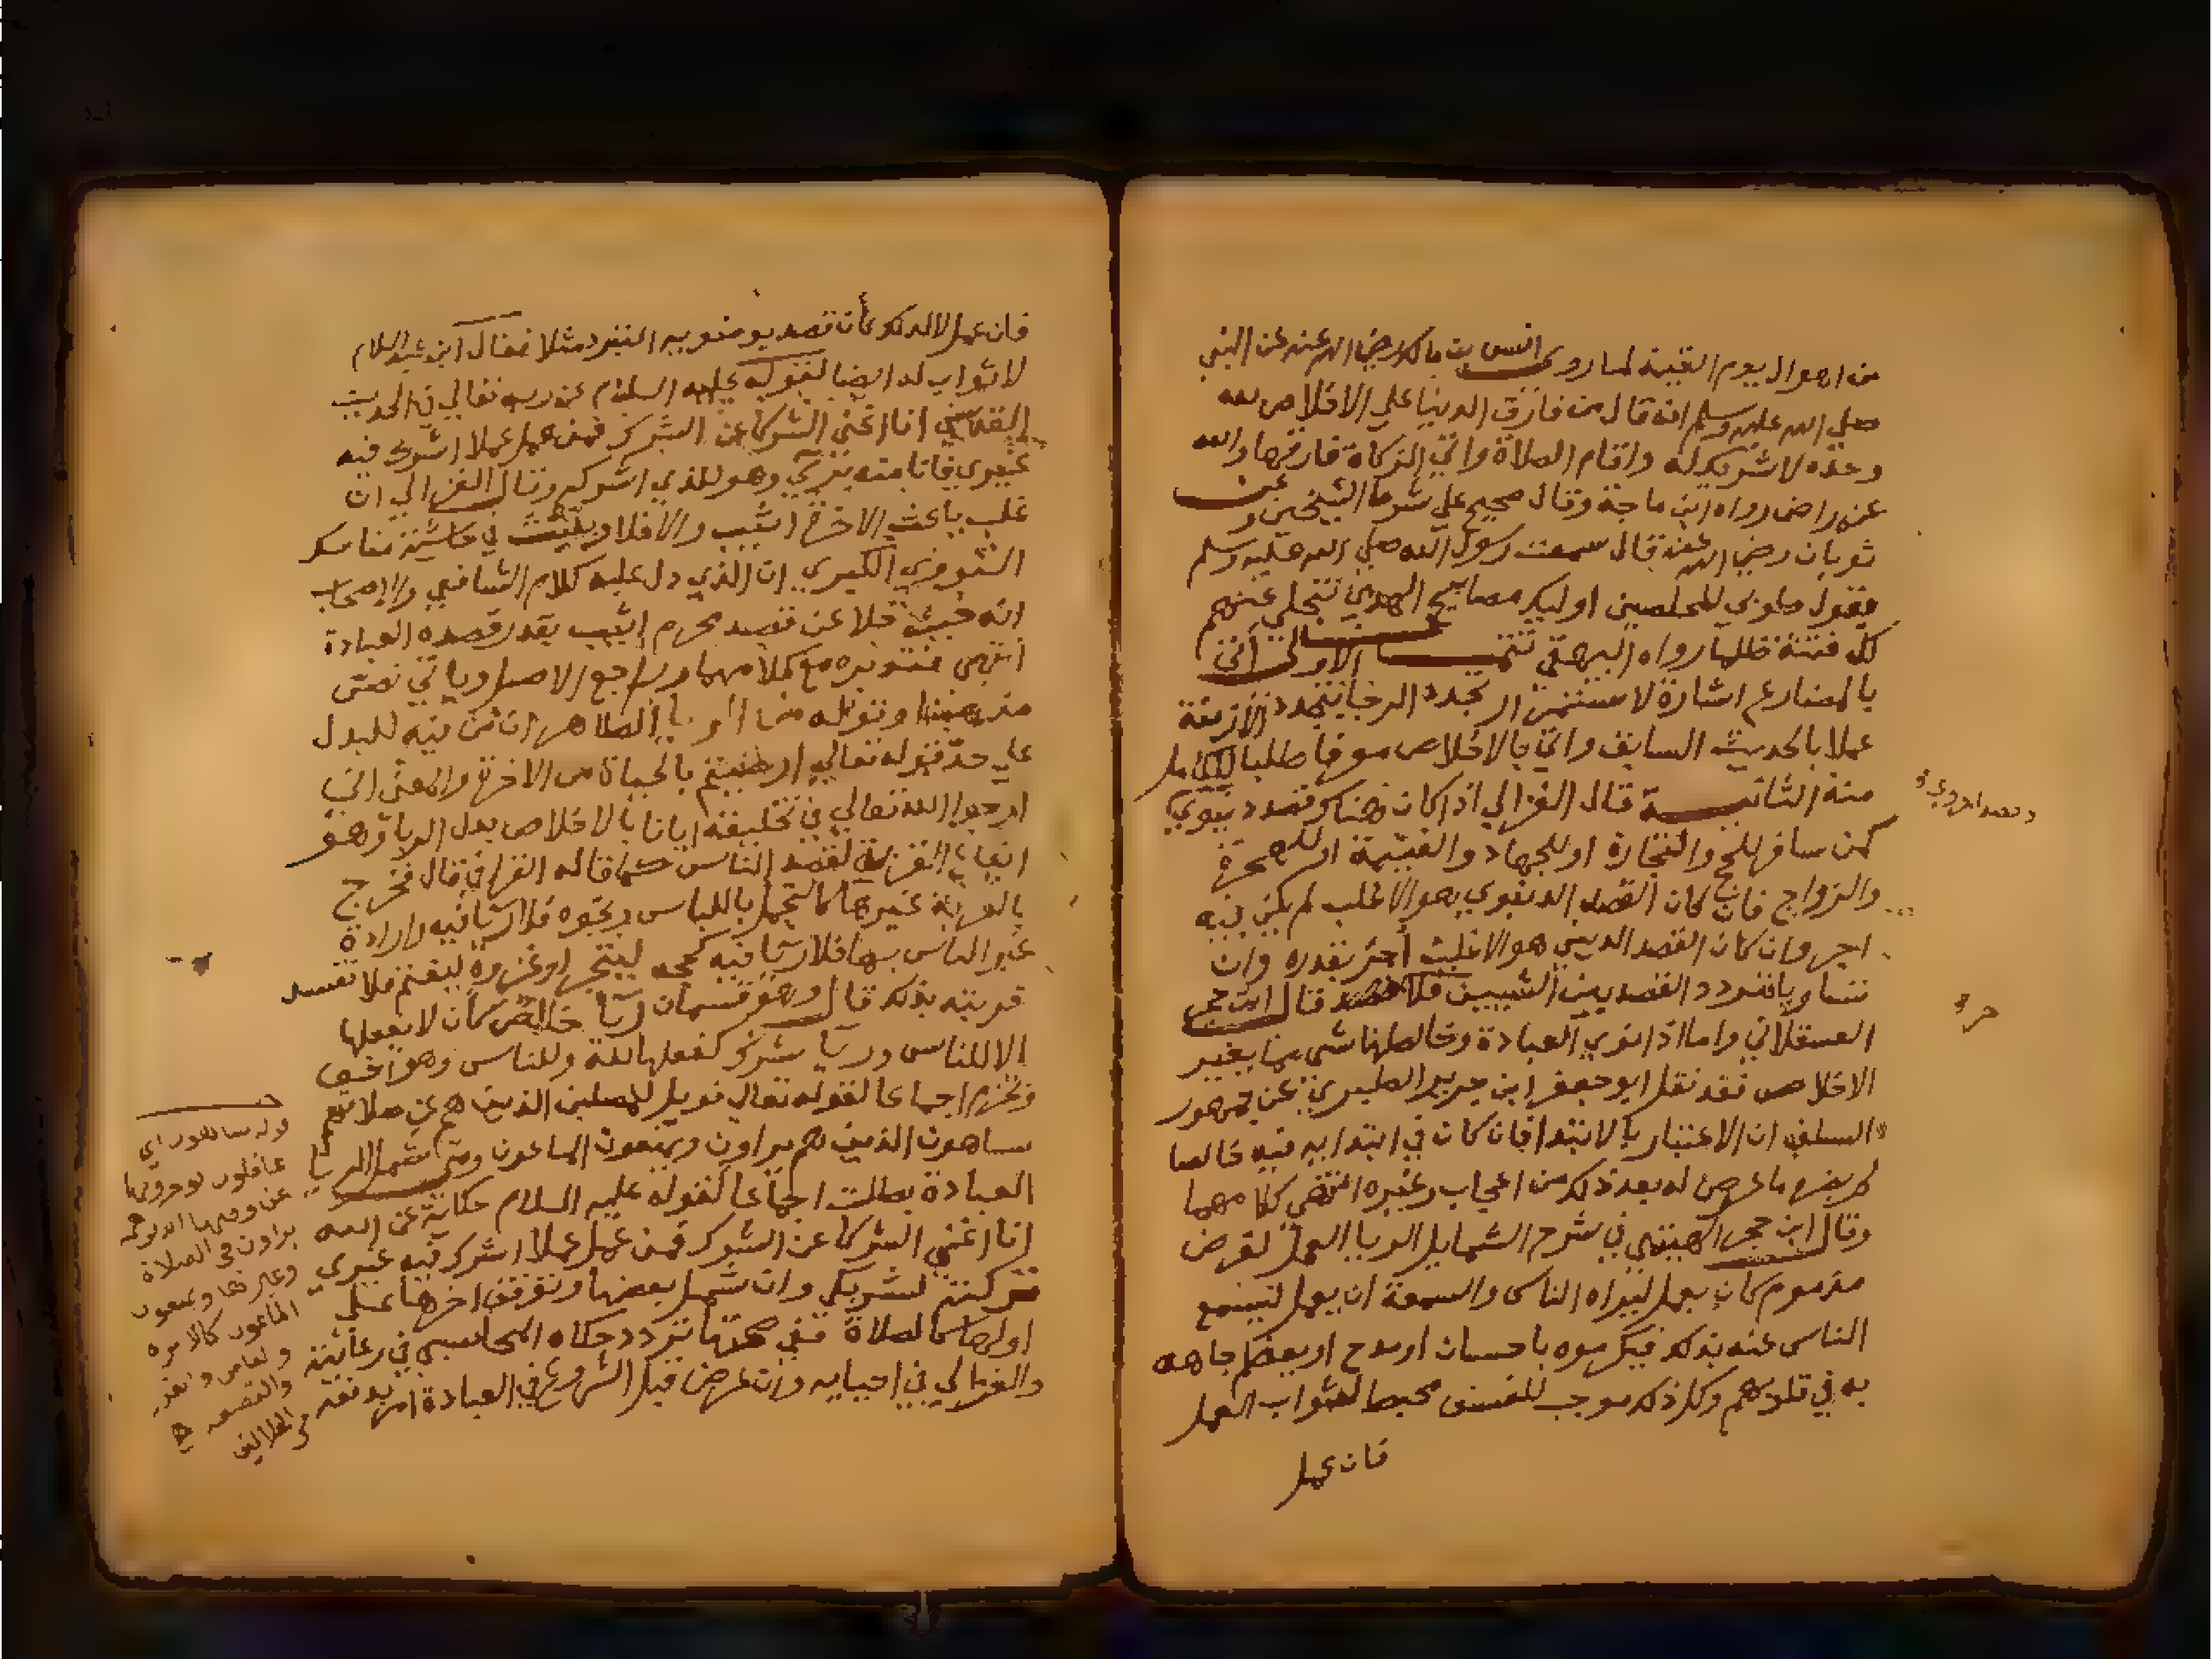 من اهوال يوم القيمة لما روى انس بن مالك رضي الله عنه عن النبي
صلي الله عليه وسلم انه قال من فارق الدنيا علي الاخلاص لله
وحده لا شريك له واقام الصلاة واتي الزكاة فارقها والله
عنه راض رواه ابن ماجة وقال صحيح علي شرط الشيخين وعن
ثوبان رضي الله عنه قال سمعت رسول الله صلي الله عليه وسلم
يقول طوبي للمخلصين اوليك مصابيح الهدي تنجلي عنهم
كل فتنة ظلما رواه البيهقي تتمــة الاولى اتي
بالمضارع اشارة لاستمرار تجدد الرجا بتجدد الازمنة
عملا بالحديث السابق واتي بالاخلاص معرفا طلبا للكامل
منه الثانيــة قال الغزالي اذا كان هناك قصد دنيوي
كمن سافر للحج والتجارة او للجهاد والغنيمة او للهجرة
والزواج فان كان القصد الدنيوي هو الاغلب لم يكن فيه
اجر وان كان القصد الديني هو الاغلب أجر بقدره وان
تساويا فتردد القصد بين الشيئين فلا قال ابن حجر
العسقلاني واما اذا نوي العبادة وخالطها شي مما يغير
الاخلاص فقد نقل ابو جعفر ابن جرير الطبري عن جمهور
السلف ان الاعتبار بالابتدا فان كان في ابتدايه فيه خالصا
لم يضره ما عرض له بعد ذلك من اعجاب وغيره انتهي كلامهما
وقال ابن حجر الهيتمي في شرح الشمايل الريا العمل لغرض
مذموم كان يعمل ليراه الناس والسمعة ان يعمل ليسمع
الناس عنه بذلك فيكرموه باحسان او مدح او يعظم جاهه
به في قلوبهم وكل ذلك موجب للفسق محبط لثواب العمل
فان عمل
فان عمل لا لذلك كأن قصد بوضويه التبرد مثلا فقال ابن عبد السلام
لا ثواب له ايضا لقوله عليه السلام عن ربه تعالي في الحديث
القدسي انا اغني الشركا عن الشرك فمن عمل عملا اشرك فيه
غيري فانا منه بري وهو للذي اشرك وقال الغزالي ان
غلب باعث الاخرة اثيب والا فلا في حاشية مناسك
النووي الكبري ان الذي دل عليه كلام الشافعي والاصحاب
انه حيث خلا عن قصد محرم اثيب بقدر قصده العبادة
انتهي مع كلامهما وليراجع الاصل وياتي نص
مذهبنا وقوله الظاهر ان من فيه للبدل
علي حد قوله تعالي ارضيتم بالحياة من الاخرة والمعني اني
ارجوا الله تعالي في تخليفه ايانا بالاخلاص بدل الريا وهو
ايقاع القربة لقصد الناس كما قاله القرافي قال فخرج
بالقربة غيرها كالتجمل باللباس ونحوه فلا ريا فيه وارادة
غير الناس بها فلا ريا فيه كحجه ليتجر او غزوه ليغنم فلا تفسد
قربته بذلك قال وهو قسمان ريا خالص كأن لا يفعلها
الا للناس وريا شرك كفعلها لله وللناس وهو اخف
وتحرم اجماعا لقوله تعالي فويل للمصلين الذين هم عن صلاتهم
ساهون الذين هم يراون ويمنعون الماعون ومتي شمل الريا
العبادة بطلت اجماعا لقوله عليه السلام حكاية عن الله
انا اغني الشركا عن الشرك فمن عمل عملا اشرك فيه غيري
تركته لشريكي وان شمل بعضها وتوقف اخرها علي
اولها كالصلاة ففي صحتها تردد حكاه المحاسبي في رعايته
والغزالي في احيايه وان عرض قبل الشروع في العبادة امر بدفعه
قوله ساهون اي
غافلون
عن وقتها
يراون في الصلاة
وغيرها ويمنعون
الماعون كالابره
والفاس والقدر
والقصعه